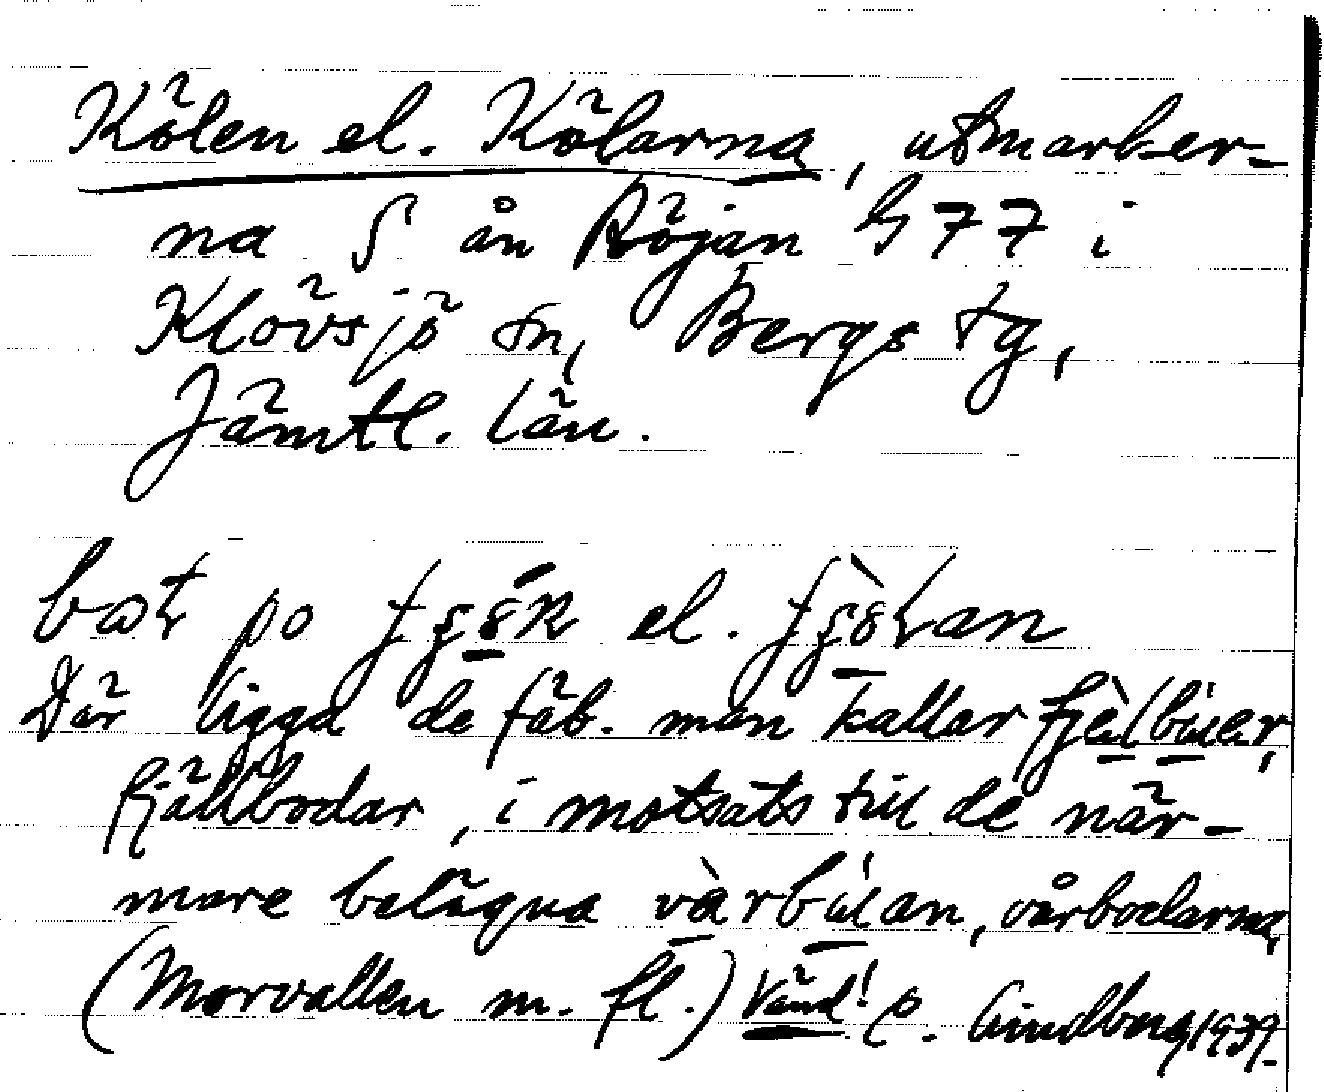 Kölen el. Kölarna, utmarker-
na S ån Röjan h 77 i
Klövsjö sn, Bergs tg,
Jämtl. län.
po el.
Där ligga de fäb. man kallar
fjällbodar, i motsats till de när-
mare belägna vårbodarna
(Morvallen m. fl.) Vänd! P. Lindberg 1939.